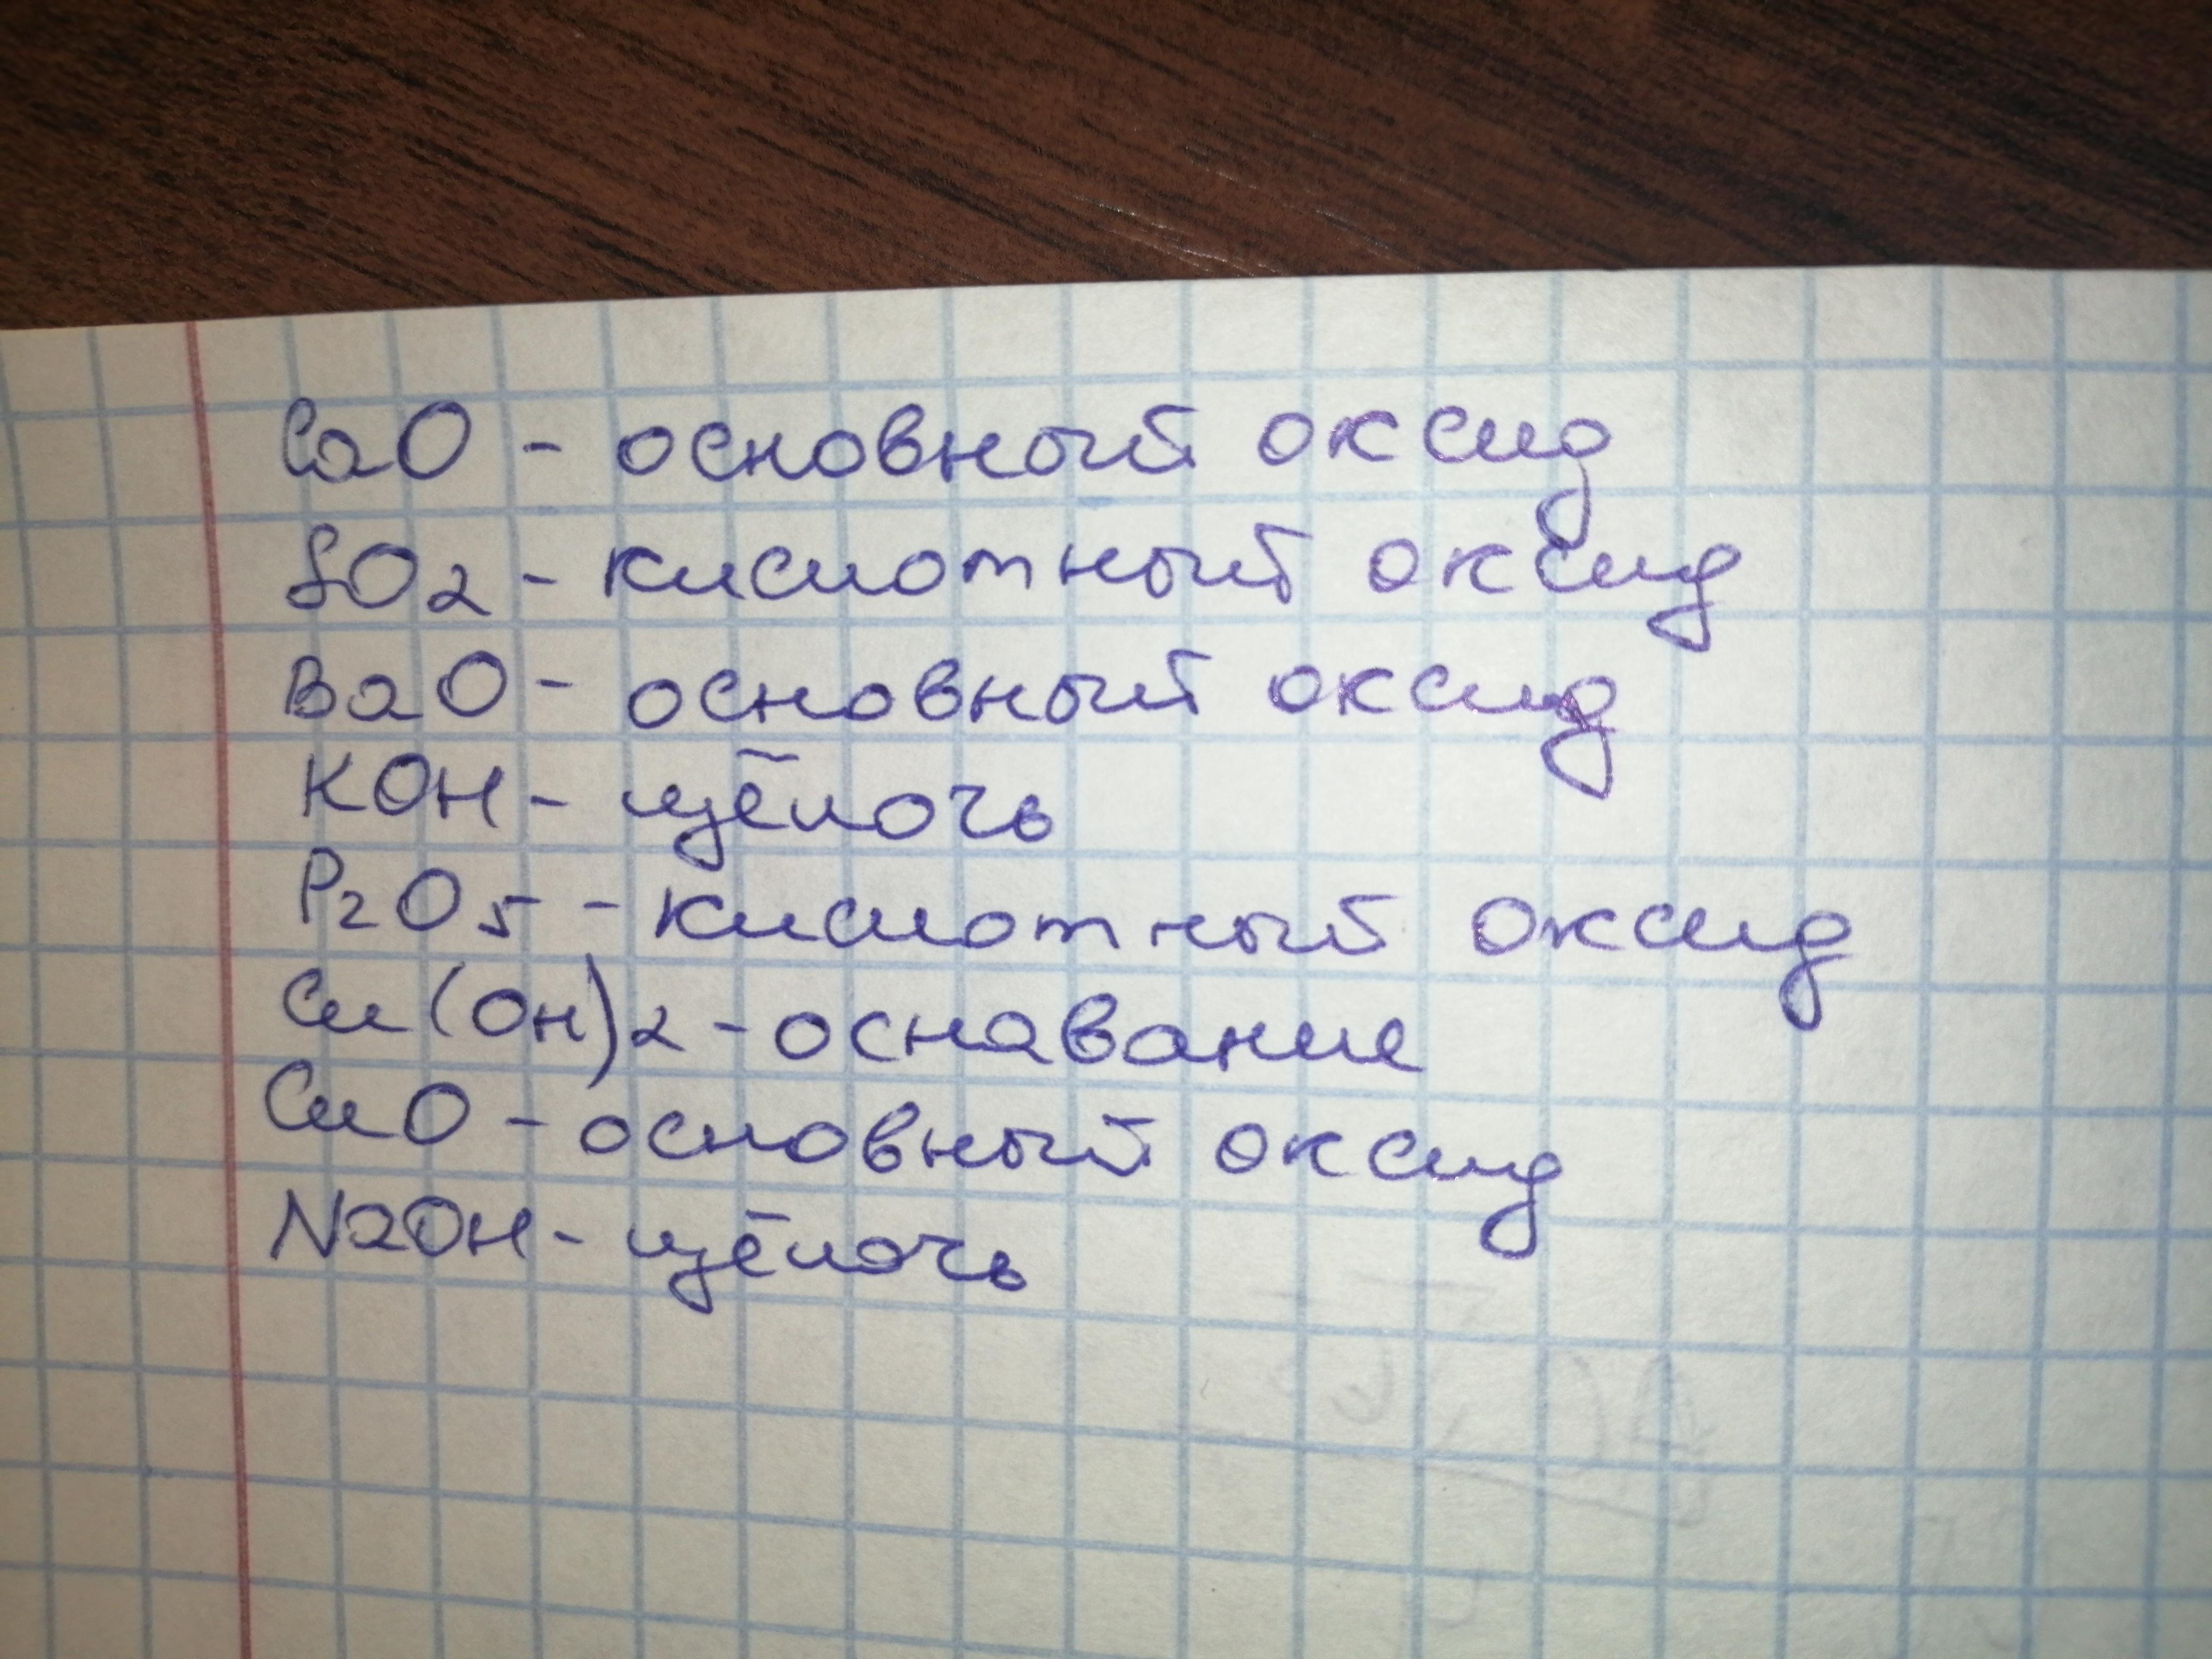 CaO - основный оксид
SO2 - кислотный оксид
BaO - основный оксид
KOH - щёлочь
P2O5 - кислотный оксид
Cu(OH)2 - оснавание
CuO - основный оксид
NaOH - щёлочь